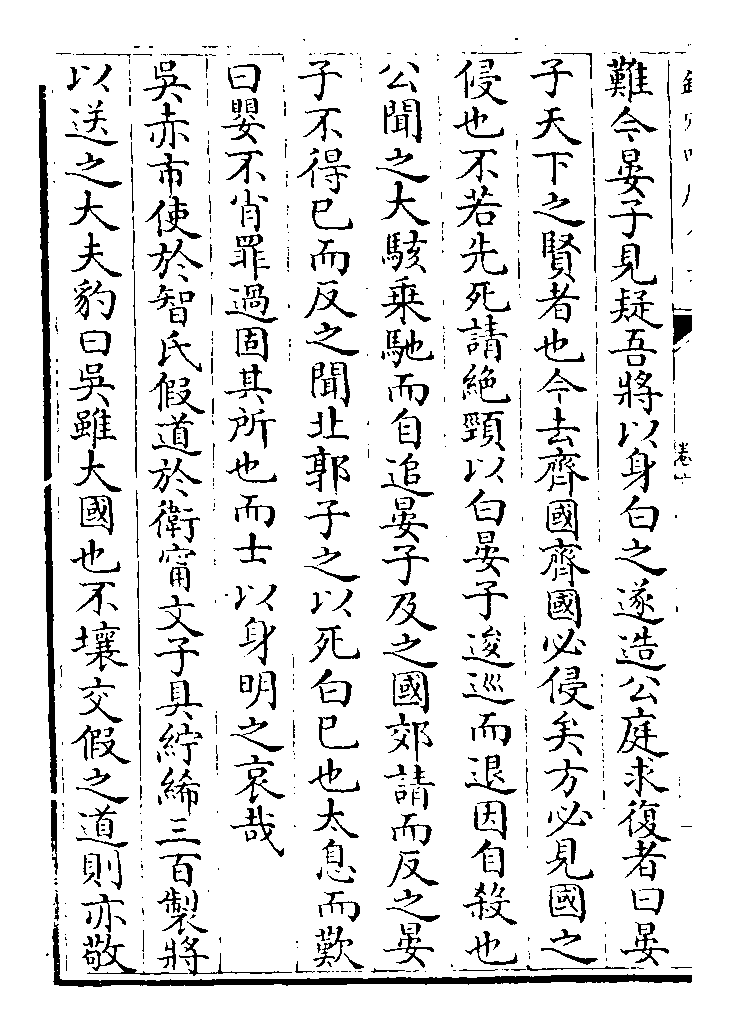 難今晏子見疑吾將以身白之遂造公庭求復者曰晏
子天下之賢者也今去齊國齊國必侵矣方必見國之
侵也不若先死請絶頸以白晏子逡巡而退因自殺也
公聞之大駭乗馳而自追晏子及之國郊請而反之晏
子不得已而反之聞北郭子之以死白已也太息而歎
曰嬰不肖罪過固其所也而士以身明之哀哉
吳赤市使於智氏假道於衛甯文子具紵絺三百製將
以送之大夫豹曰吳雖大國也不壤交假之道則亦敬